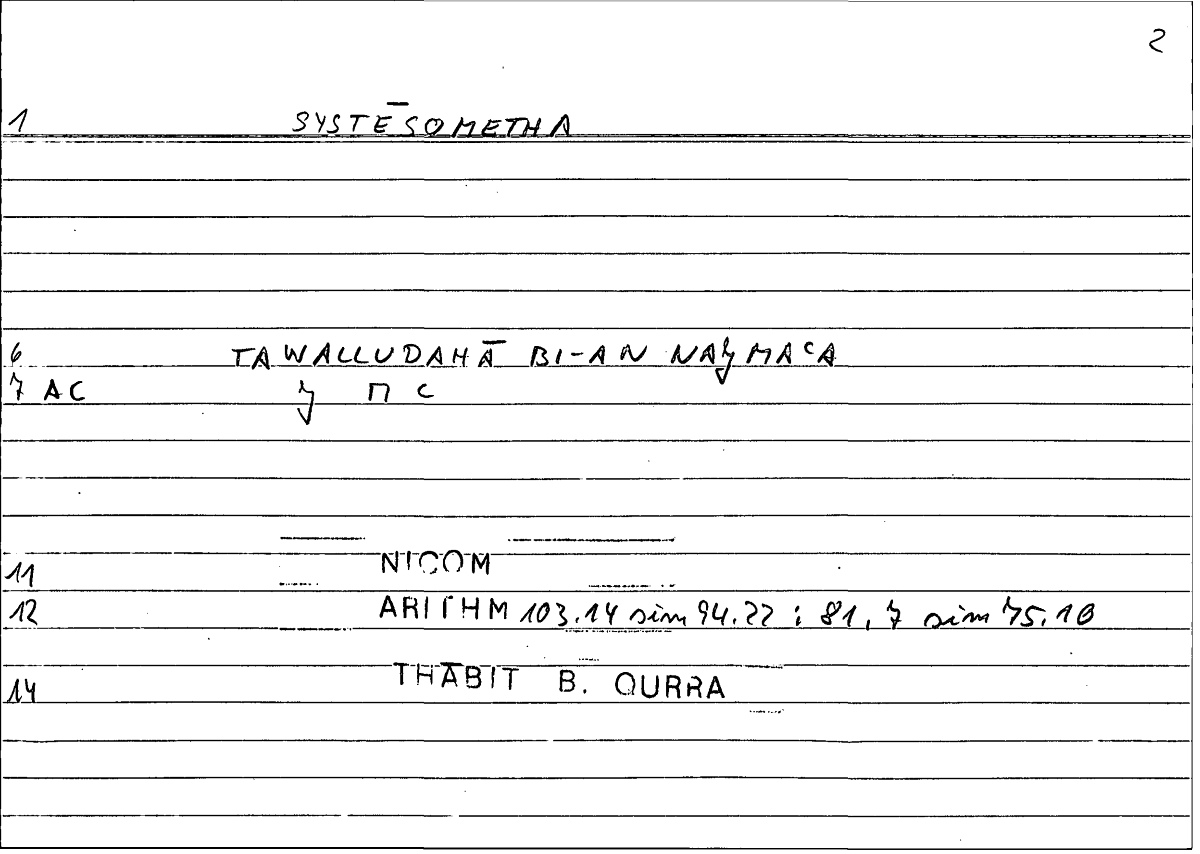 2
1 SYSTĒSOMETHA
6 TAWALLUDAHĀ BI-AN NAǧMAᶜA
7 AC ǧ M C
11 NICOM
12 ARITHM 103.14 sim 94.22 ; 81, 7 sim 75.10
14 THĀBIT B. QURRA